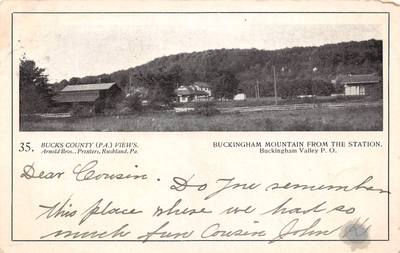 35. BUCKS COUNTY (PA.) VIEWS.
Arnold Bros., Printers, Rushland, Pa.
BUCKINGHAM MOUNTAIN FROM THE STATION.
Buckingham Valley P. O.
Dear Cousin. Do you remember
this place where we had so
much fun Cousin John